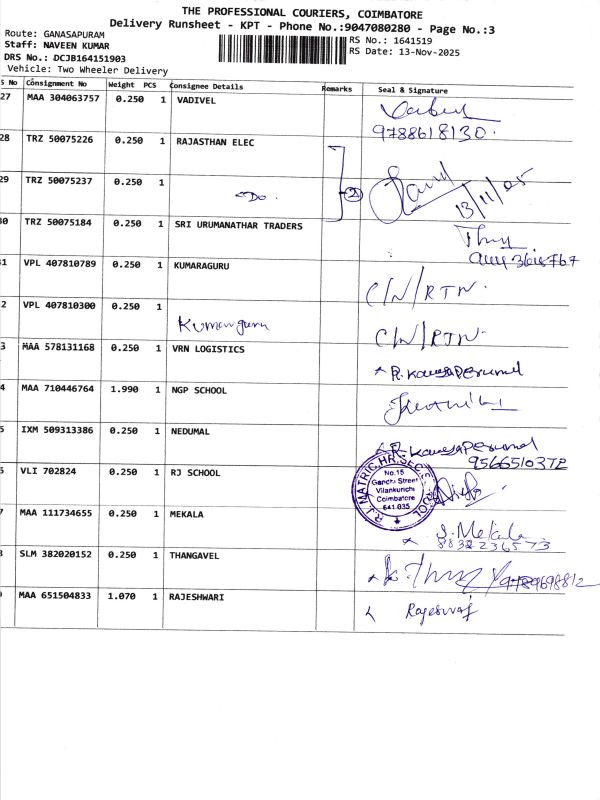 THE PROFESSIONAL COURIERS, COIMBATORE
Delivery Runsheet - KPT - Phone No.:9047080280 - Page No.:3
Route: GANASAPURAM
Staff: NAVEEN KUMAR
DRS No.: DCJB164151903
Vehicle: Two Wheeler Delivery
RS No.: 1641519
RS Date: 13-Nov-2025
S No Consignment No Weight PCS Consignee Details Remarks Seal & Signature
27 MAA 304063757 0.250 1 VADIVEL
9788618130.
28 TRZ 50075226 0.250 1 RAJASTHAN ELEC
29 TRZ 50075237 0.250 1 Do. 2
13/11/25
30 TRZ 50075184 0.250 1 SRI URUMANATHAR TRADERS
1 VPL 407810789 0.250 1 KUMARAGURU C/N/RTN.
2 VPL 407810300 0.250 1 Kumaraguru C/N/RTN.
3 MAA 578131168 0.250 1 VRN LOGISTICS
4 MAA 710446764 1.990 1 NGP SCHOOL
5 IXM 509313386 0.250 1 NEDUMAL
9566510372
6 VLI 702824 0.250 1 RJ SCHOOL
R.J. MATRIC.HR.SEC. SCHOOL
No.15
Street
Vilankurichi
Coimbatore
641 035
7 MAA 111734655 0.250 1 MEKALA S. Mekala
8 SLM 382020152 0.250 1 THANGAVEL
MAA 651504833 1.070 1 RAJESHWARI